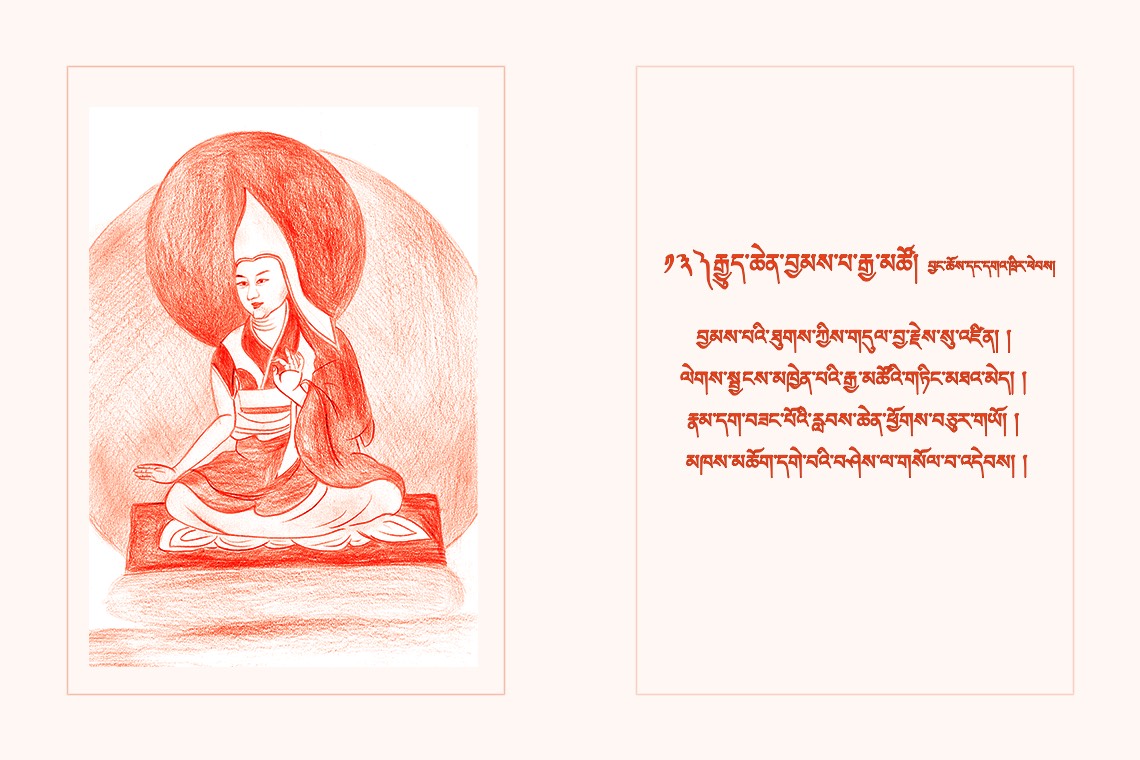 ༡༣ ༽རྒྱུད་ཆེན་བྱམས་པ་རྒྱ་མཚོ། བྱང་ཆོས་དང་དགའ་ཁྲིར་ཕེབས།
བྱམས་པའི་ཐུགས་ཀྱིས་གདུལ་བྱ་རྗེས་སུ་འཛིན། །
ལེགས་སྦྱངས་མཁྱེན་པའི་རྒྱ་མཚོའི་གཏིང་མཐའ་མེད། །
རྣམ་དག་བཟང་པོའི་རླབས་ཆེན་ཕྱོགས་བཅུར་གཡོ། །
མཁས་མཆོག་དགེ་བའི་བཤེས་ལ་གསོལ་བ་འདེབས། །